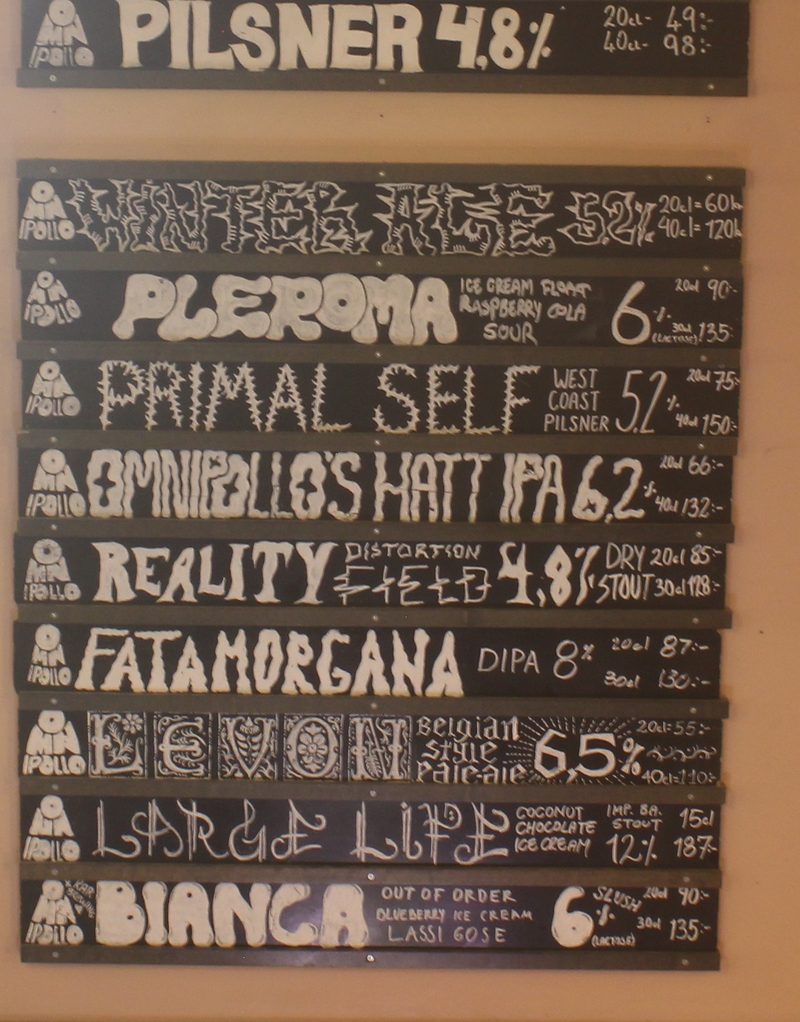 OMNIPOLLO PILSNER 4,8% 20cl- 49:-
40cl- 98:-
OMNIPOLLO WINTER 5.2% 20cl= 60k
40cl= 120k
OMNIPOLLO PLEROMA ICE CREAM FLOAT 6% 20cl 90:-
RASPBERRY COLA
SOUR (LACTOSE) 30cl 135:-
OMNIPOLLO PRIMAL SELF WEST 5.2% 20cl 75:-
COAST
PILSNER 40cl 150:-
OMNIPOLLO OMNIPOLLO'S HATT IPA 6,2% 20cl 66:-
40cl 132:-
OMNIPOLLO REALITY DISTORTION 4,8% DRY 20cl 85:-
FIELD STOUT 30cl 128:-
OMNIPOLLO FATAMORGANA DIPA 8% 20cl 87:-
30cl 130:-
OMNIPOLLO LEVON Belgian 6,5% 20cl=55:-
style
Pale-ale 40cl=110:-
OMNIPOLLO LARGE LIFE COCONUT IMP. BA. 15cl
CHOCOLATE STOUT
ICE CREAM 12% 187:-
OMNIPOLLO BIANCA OUT OF ORDER 6% SLUSH 20cl 90:-
BLUEBERRY ICE CREAM
LASSI GOSE (LACTOSE) 30cl 135:-